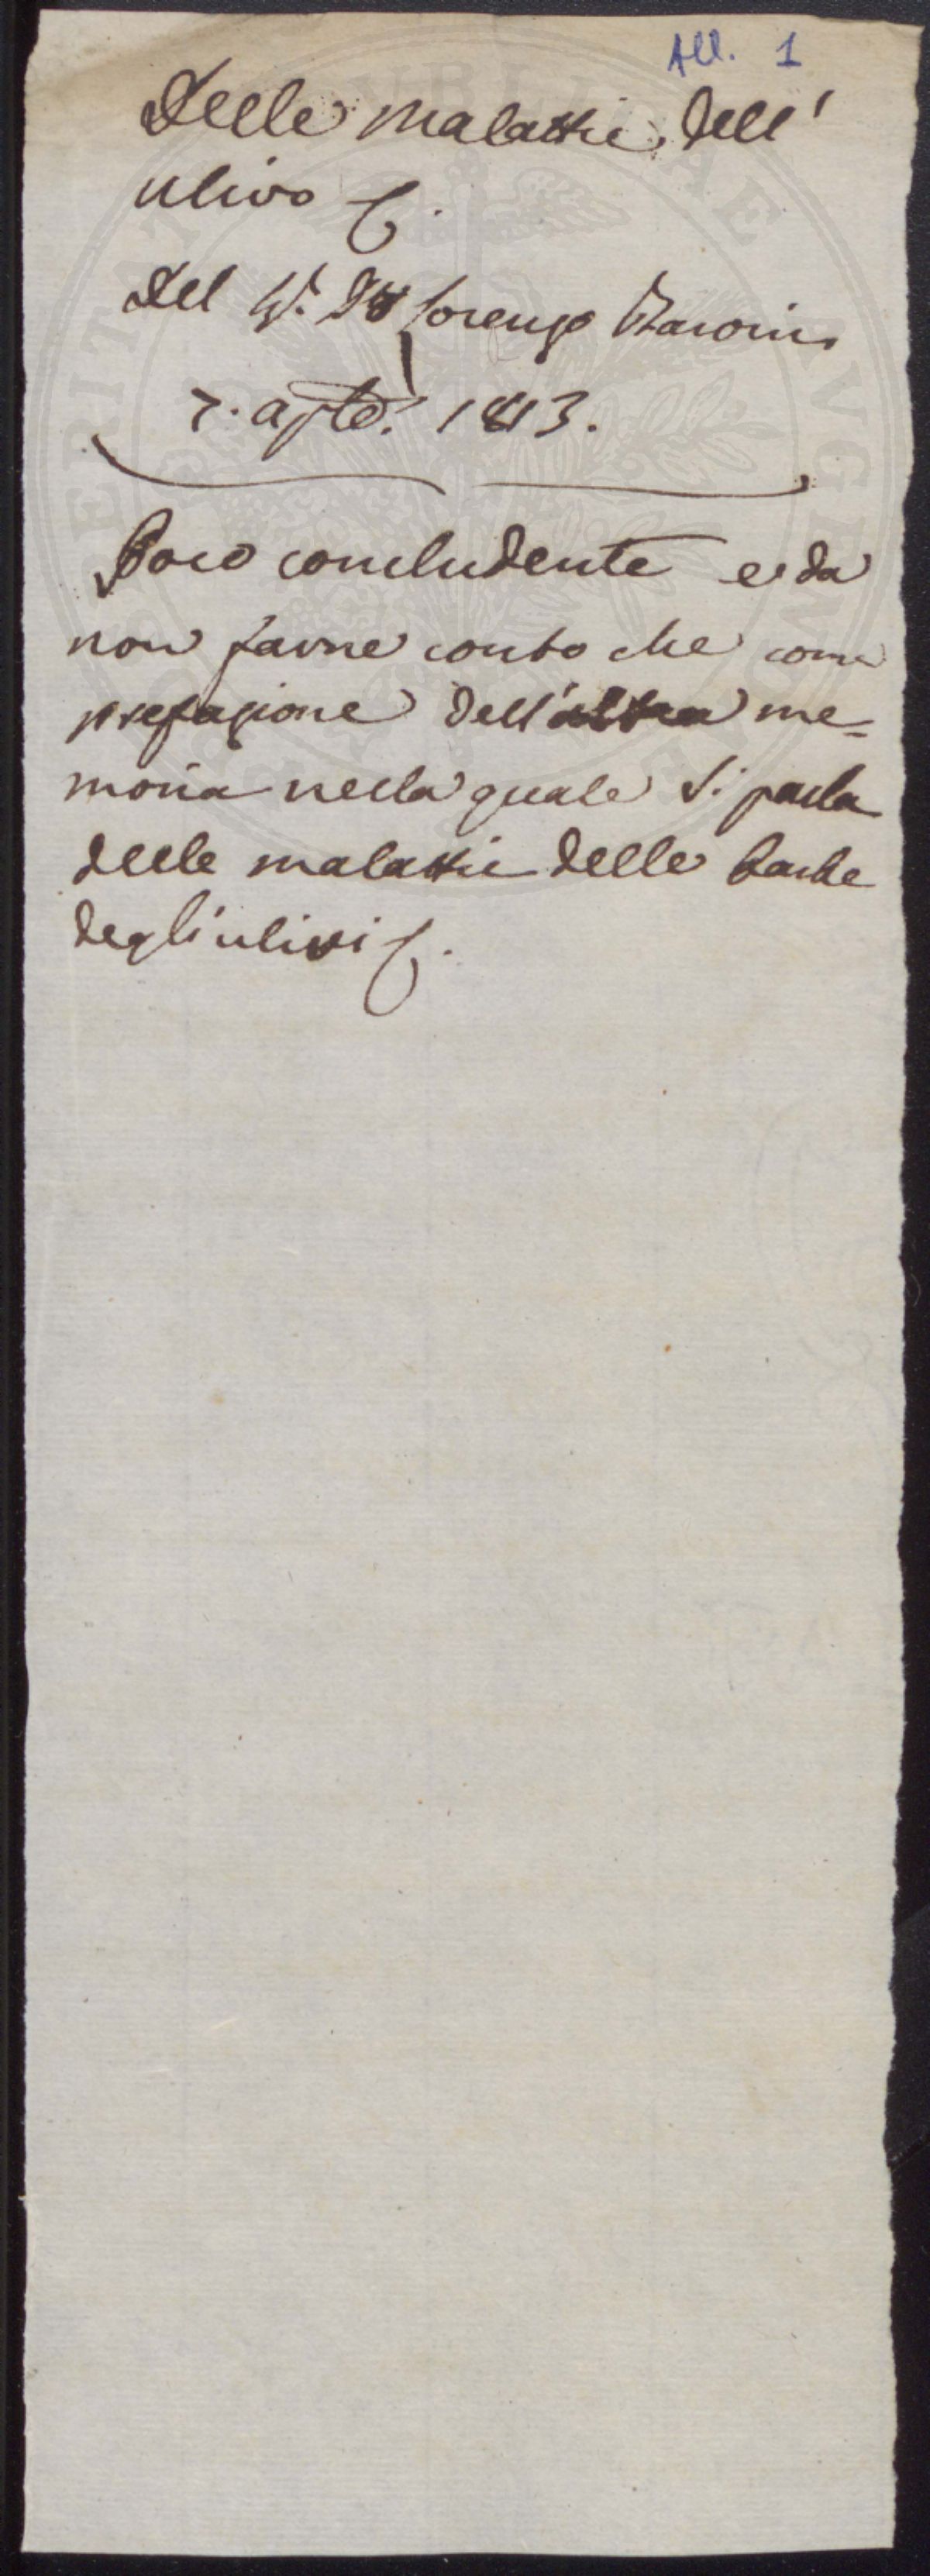 All. 1
Delle malattie dell'
ulivo
Del Lorenzo Baroni
7. agto. 1813.
Poco concludente e da
non farne conto che come
prefazione dell'altra me=
moria nella quale si parla
delle malattie delle barbe
degli ulivi